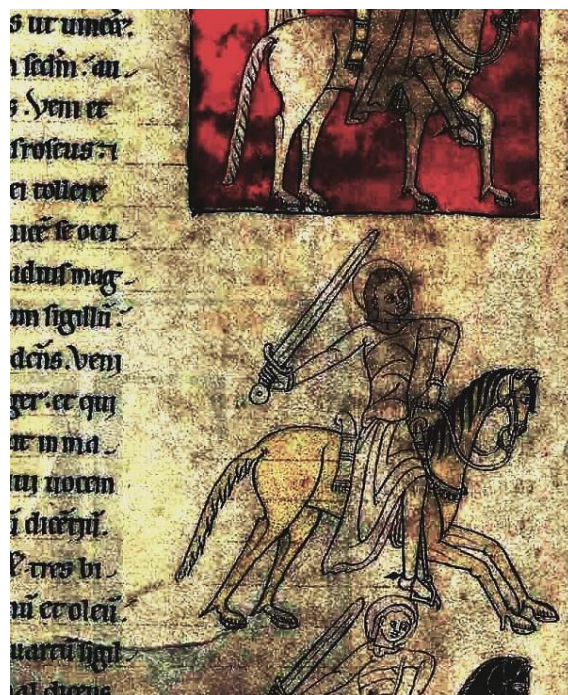 s ut uincer̃.
sc̄dm̄. au
s. Veni et
roseus: ⁊
ei tollere
uicē se occi
adius mag
um sigillū:
dcn̄s. Veni
ger. et qui
in ma
uocem
dicētiū.
tres bi
nū et oleū.
uartū sigil
al dicens